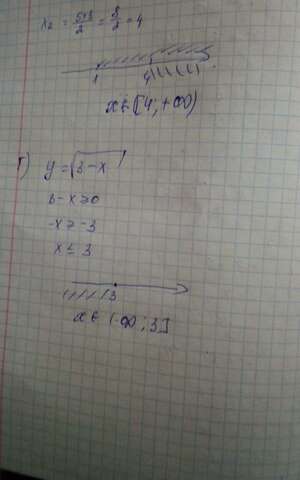 x₂ = \frac{5+3}{2} = \frac{8}{2} = 4
1 4
x ∈ [4; +∞)
г) y = √3-x
3-x ≥ 0
-x ≥ -3
x ≤ 3
3
x ∈ (-∞; 3]